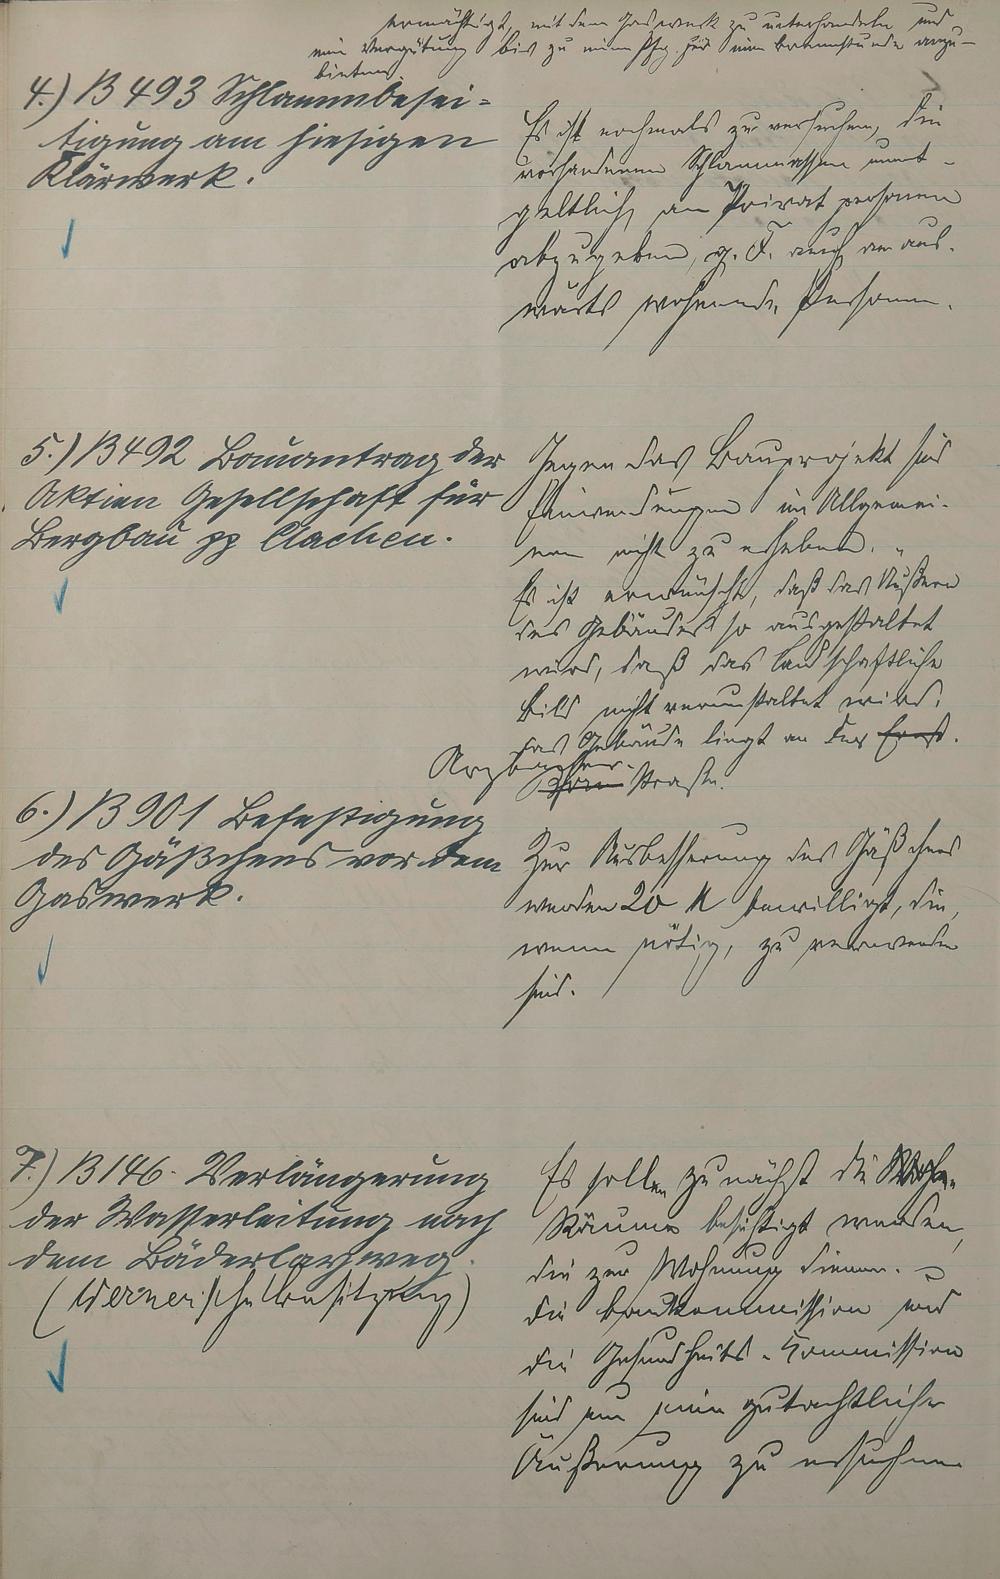 ermächtigt, mit dem Gaswerk zu unterhandeln und
eine Vergütung bis zu einem Pfg. für eine Brennstunde anzu-
bieten.
4.) B 493 Schlammbesei-
tigung am hiesigen
Klärwerk.
Es ist nochmals zu versuchen, die
vorhandenen Schlammassen unent-
geltlich, an Privatpersonen
abzugeben, g. F. auch an aus-
wärts wohnende Personen.
5.) B 492 Bauantrag der
Aktien Gesellschaft für
Bergbau pp Aachen.
Gegen das Bauprojekt sind
Einwendungen im Allgemei-
nen nicht zu erheben.
Es ist erwünscht, daß das Äußere
des Gebäudes so ausgestaltet
wird, daß das landschaftliche
Bild nicht verunstaltet wird.
Das Gebäude liegt an der
Arzbacher-
Straße.
6.) B 901 Befestigung
des Gäßchens vor dem
Gaswerk.
Zur Ausbesserung des Gäßchens
werden 20 M bewilligt, die,
wenn nötig, zu verwenden
sind.
7.) B 146. Verlängerung
der Wasserleitung nach
dem Bäderlayweg.
(Werner'sche Besitzung)
Es sollen zunächst die
Räume besichtigt werden,
die zur Wohnung dienen.
Die Baukommission und
die Gesundheits-Kommission
sind um eine gutachtliche
Äußerung zu ersuchen